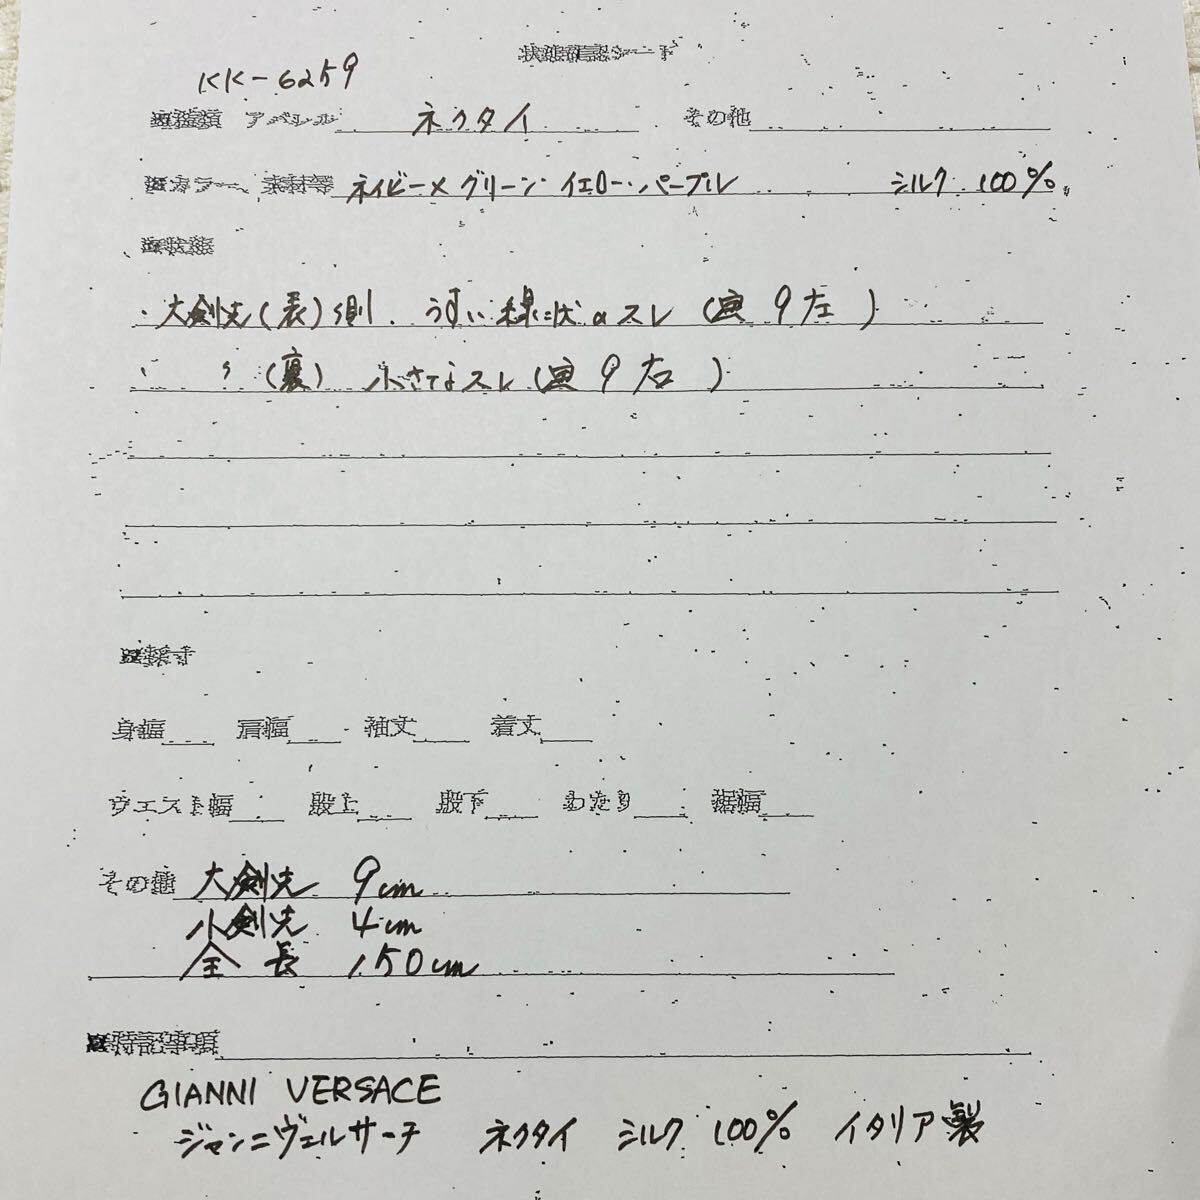 状態確認シート
KK-6259
■種類 アパレル ネクタイ その他
■カラー、素材等 ネイビー×グリーン・イエロー・パープル シルク 100%
■状態
・大剣先(表)側、うすい線状のスレ(画9左)
・ 〃 (裏) 小さなスレ(画9右)
■採寸
身幅 肩幅 袖丈 着丈
ウエスト幅 股上 股下 わたり 裾幅
その他 大剣先 9cm
小剣先 4cm
全長 150cm
■特記事項
GIANNI VERSACE
ジャンニヴェルサーチ ネクタイ シルク 100% イタリア製